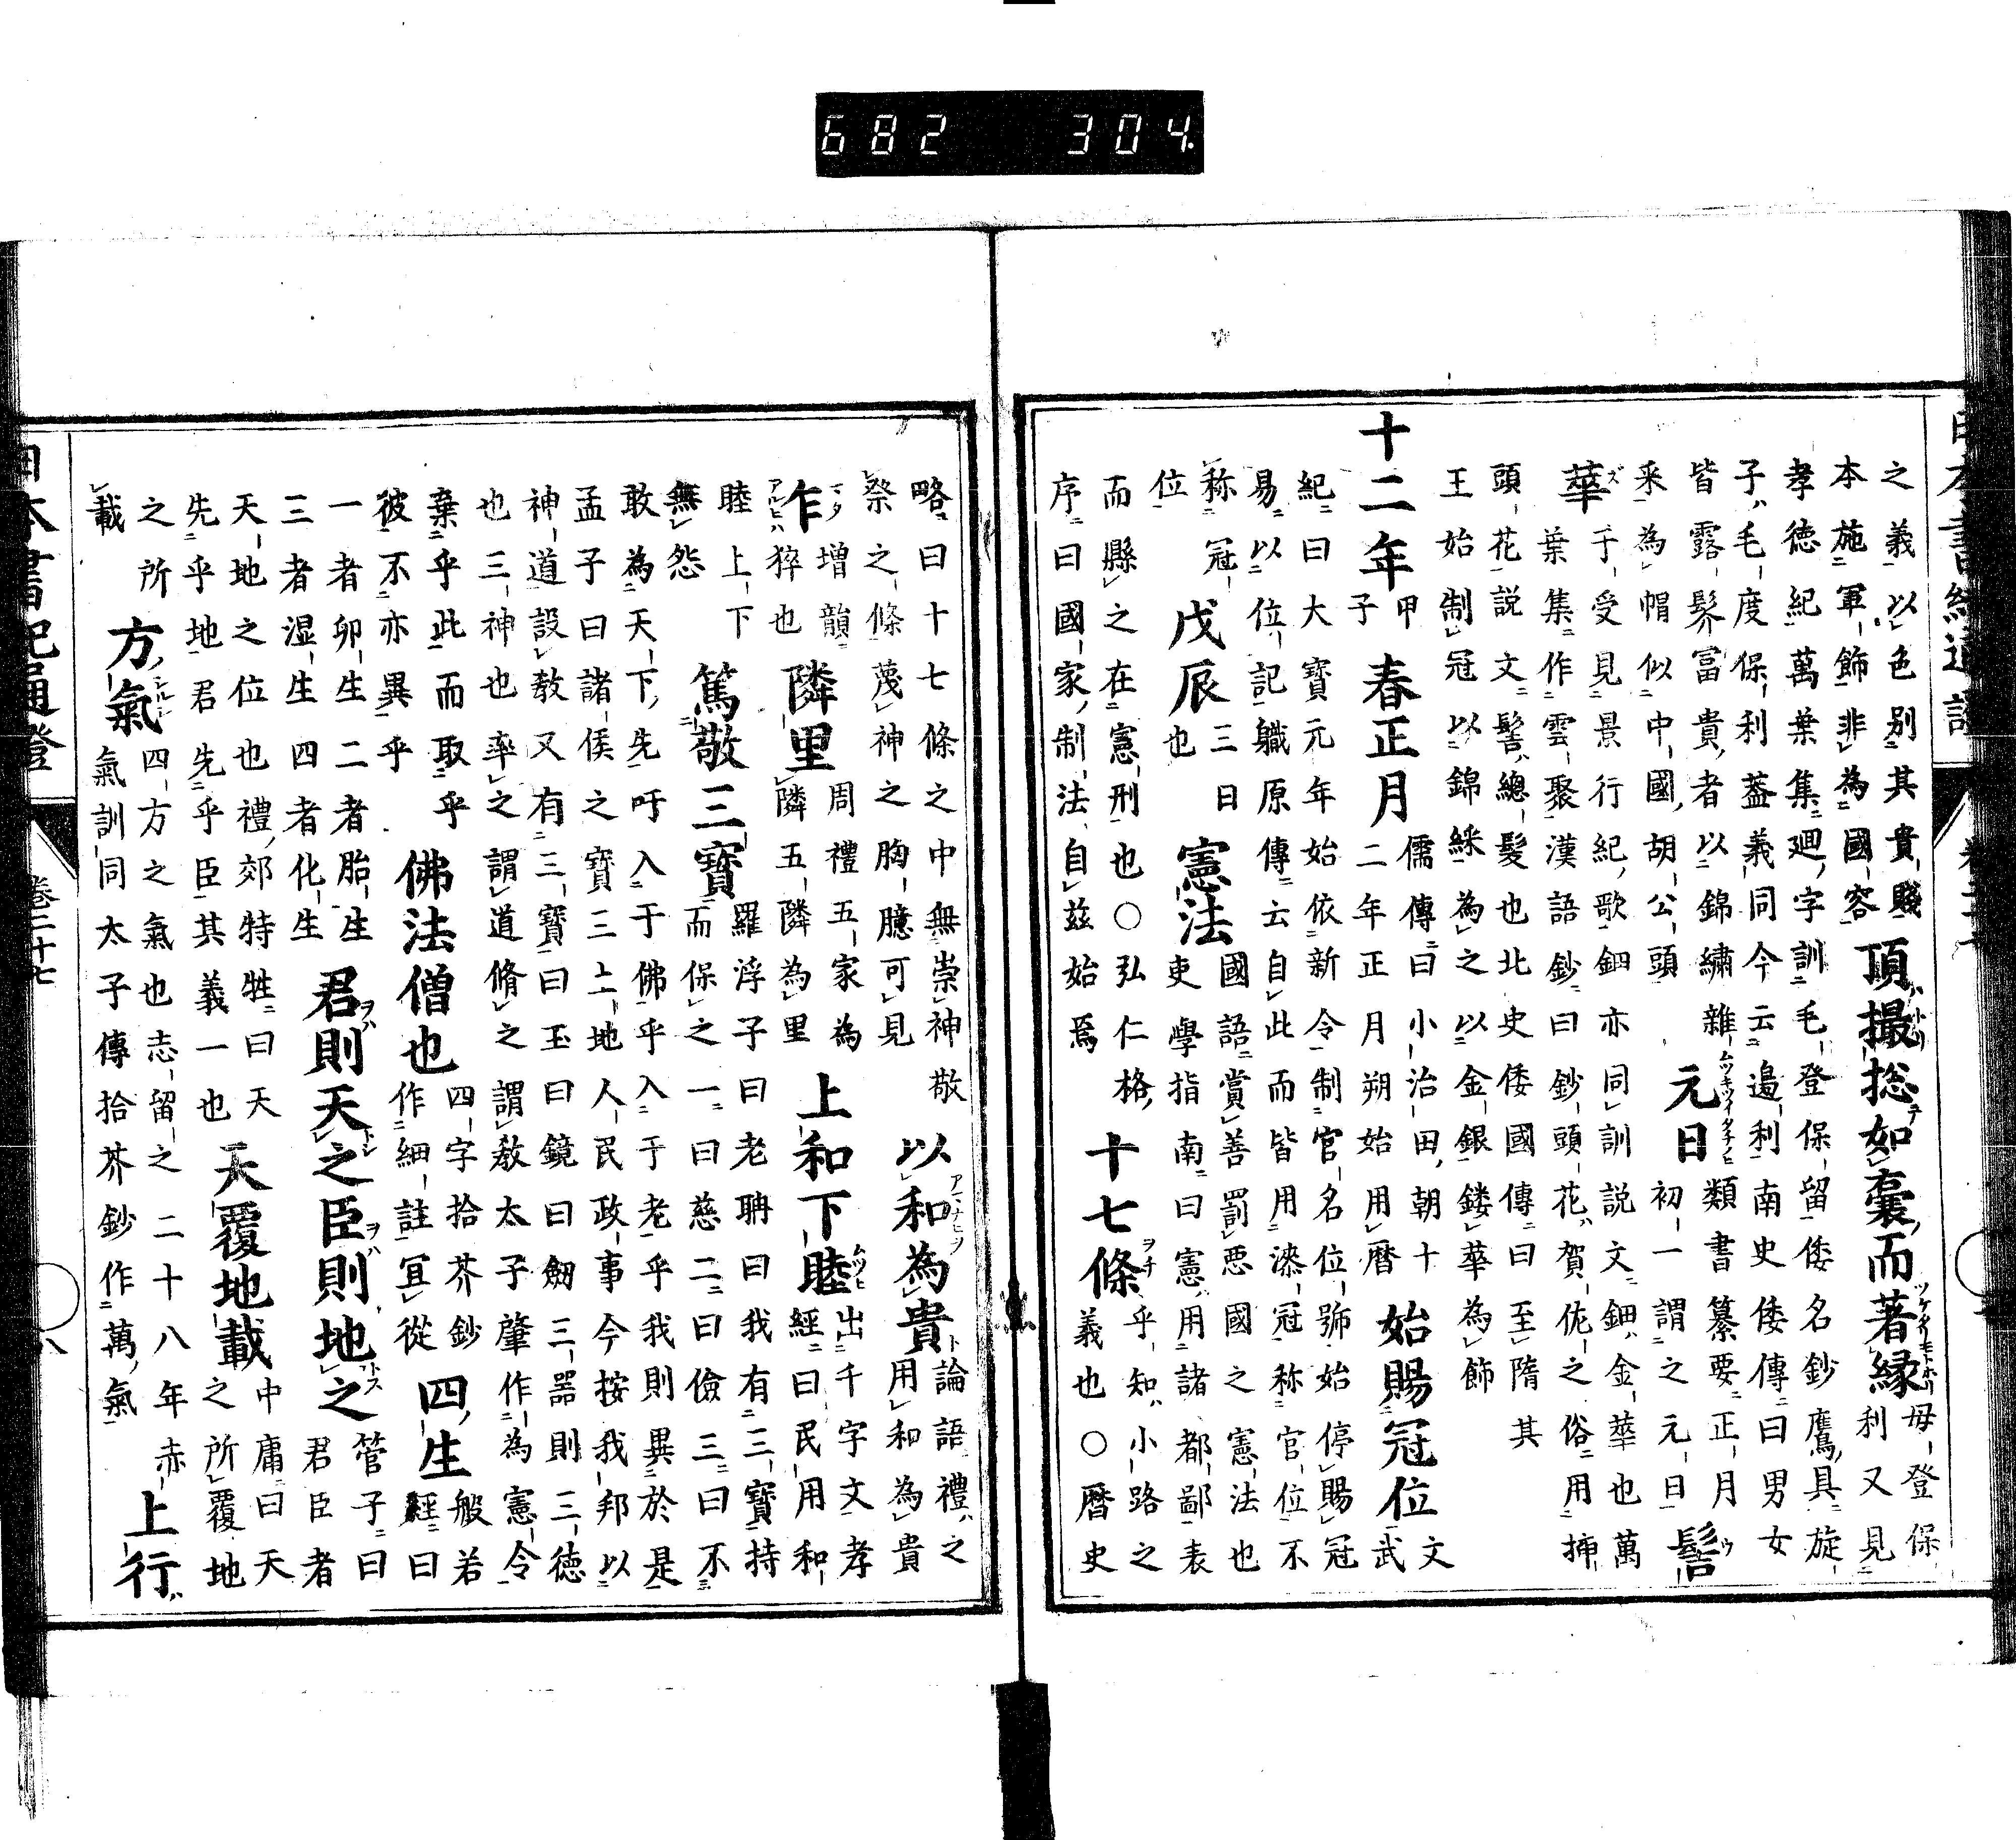 682 304
之義以色別其貴賤
本施軍飾非為國容
頂撮総如囊而著縁
毋登保
利又見
孝徳紀萬葉集廻字訓毛登保留倭名鈔鷹具旋
子毛度保利葢義同今云邉利南史倭傳曰男女
皆露髪冨貴者以錦繡雜
采為帽似中國胡公頭
元日
類書纂要正月
初一謂之元日
髻
華
于受見景行紀歌鈿亦同訓説文鈿金華也萬
葉集作雲聚漢語鈔曰鈔頭花賀佐之俗用揷
頭花説文髻總髮也北史倭國傳曰至隋其
王始制冠以錦綵為之以金銀鏤華為飾
十二年
甲
子
春正月
儒傳曰小治田朝十
二年正月朔始用暦
始賜冠位
文
武
紀曰大寶元年始依新令制官名位號始停賜冠
易以位記職原傳云自此而皆用漆冠称官位不
称冠
位
戊辰
三日
也
憲法
國語賞善罰悪國之憲法也
吏學指南曰憲用諸都鄙表
而縣之在憲刑也○弘仁格
序曰國家制法自茲始焉
十七條
乎知小路之
義也○暦史
略曰十七條之中無崇神敬
祭之條蔑神之胸臆可見
以和為貴
論語禮之
用和為貴
乍
増韻
猝也
隣里
周禮五家為
隣五隣為里
上和下睦
出千字文孝
經曰民用和
睦上下
無怨
篤敬三寶
羅浮子曰老聃曰我有三寶持
而保之一曰慈二曰儉三曰不
敢為天下先吁入于佛乎入于老乎我則異於是
孟子曰諸侯之寶三土地人民政事今按我邦以
神道設教又有三寶曰玉曰鏡曰劒三噐則三徳
也三神也率之謂道脩之謂教太子肇作為憲令
棄乎此而取乎
彼不亦異乎
佛法僧也
四字拾芥鈔
作細註冝從
四生
般若
經曰
一者卵生二者胎生
三者湿生四者化生
君則天之臣則地之
管子曰
君臣者
天地之位也禮郊特牲曰天
先乎地君先乎臣其義一也
天覆地載
中庸曰天
之所覆地
之所
載
方氣
四方之氣也志留之二十八年赤
氣訓同太子傳拾芥鈔作萬氣
上行
日本書紀通證
卷二十七
八